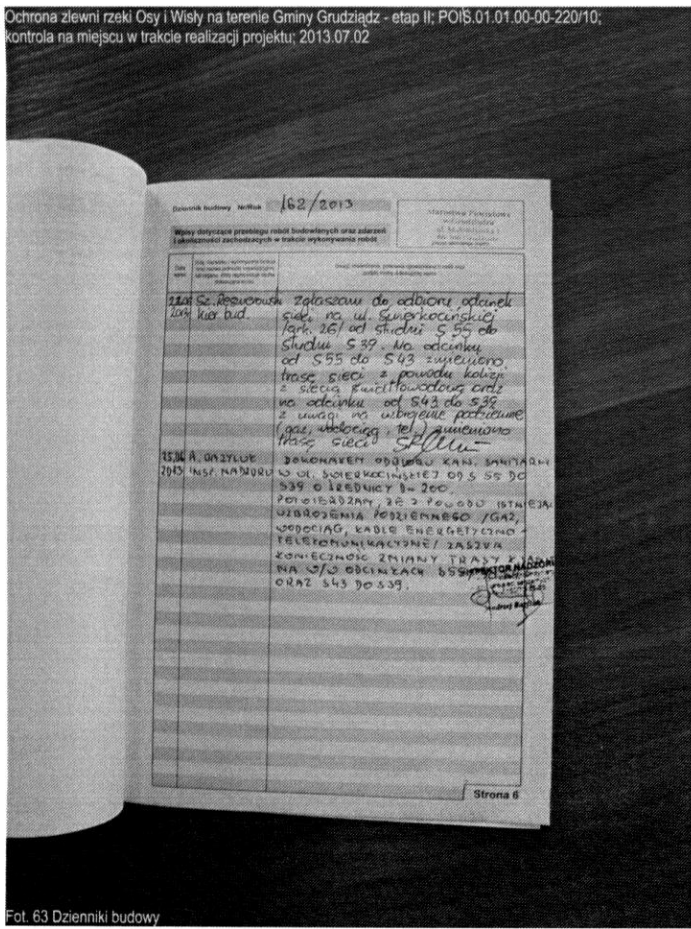 Ochrona zlewni rzeki Osy i Wisły na terenie Gminy Grudziądz - etap II; POIŚ.01.01.00-00-220/10;
kontrola na miejscu w trakcie realizacji projektu; 2013.07.02
Dziennik budowy Nr/Rok 162/2013
Wpisy dotyczące przebiegu robót budowlanych oraz zdarzeń
i okoliczności zachodzących w trakcie wykonywania robót
Zgłaszam do odbioru odcinek
2013 kier. bud. sieci na ul. Świerkocińskiej
/ark. 26/ od studni S 55 do
studni S 39. Na odcinku
od S55 do S43 zmieniono
trasę sieci z powodu kolizji
z siecią światłowodową oraz
na odcinku od S43 do S39
z uwagi na uzbrojenie podziemne
(gaz, wodociąg, tel.) zmieniono
trasę sieci
DOKONAŁEM ODBIORU KAN. SANITARN
2013 INSP. NADZORU W UL. ŚWIERKOCIŃSKIEJ OD S 55 DO
S39 O ŚREDNICY D-200.
POTWIERDZAM, ŻE Z POWODU ISTNIEJĄ
UZBROJENIA PODZIEMNEGO /GAZ,
WODOCIĄG, KABLE ENERGETYCZNO -
TELEKOMUNIKACYJNE/ ZASZŁA
KONIECZNOŚĆ ZMIANY TRASY
NA W/W ODCINKACH S55
ORAZ S43 DO S39.
Strona 6
Fot. 63 Dzienniki budowy